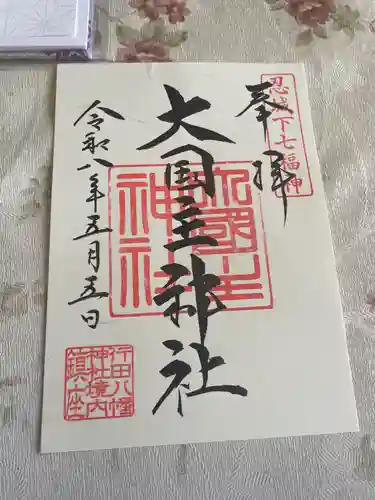 忍城下七福神
奉拝
大国主神社
大國主
神社
令和八年五月五日
行田八幡
神社境内
鎮座